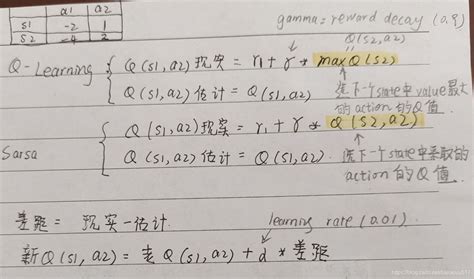 a1 a2
s1 -2 1
s2 -4 2
gamma = reward decay (0.9)
Q(s2, a2)
Q-Learning { Q(s1, a2) 现实 = r1 + γ * max Q(s2)
Q(s1, a2) 估计 = Q(s1, a2)
选下一个state中value最大
的action的Q值
Sarsa { Q(s1, a2) 现实 = r1 + γ * Q(s2, a2)
Q(s1, a2) 估计 = Q(s1, a2).
选下一个state中采取的
action的Q值
差距 = 现实 - 估计.
learning rate (0.01)
新Q(s1, a2) = 老Q(s1, a2) + α * 差距